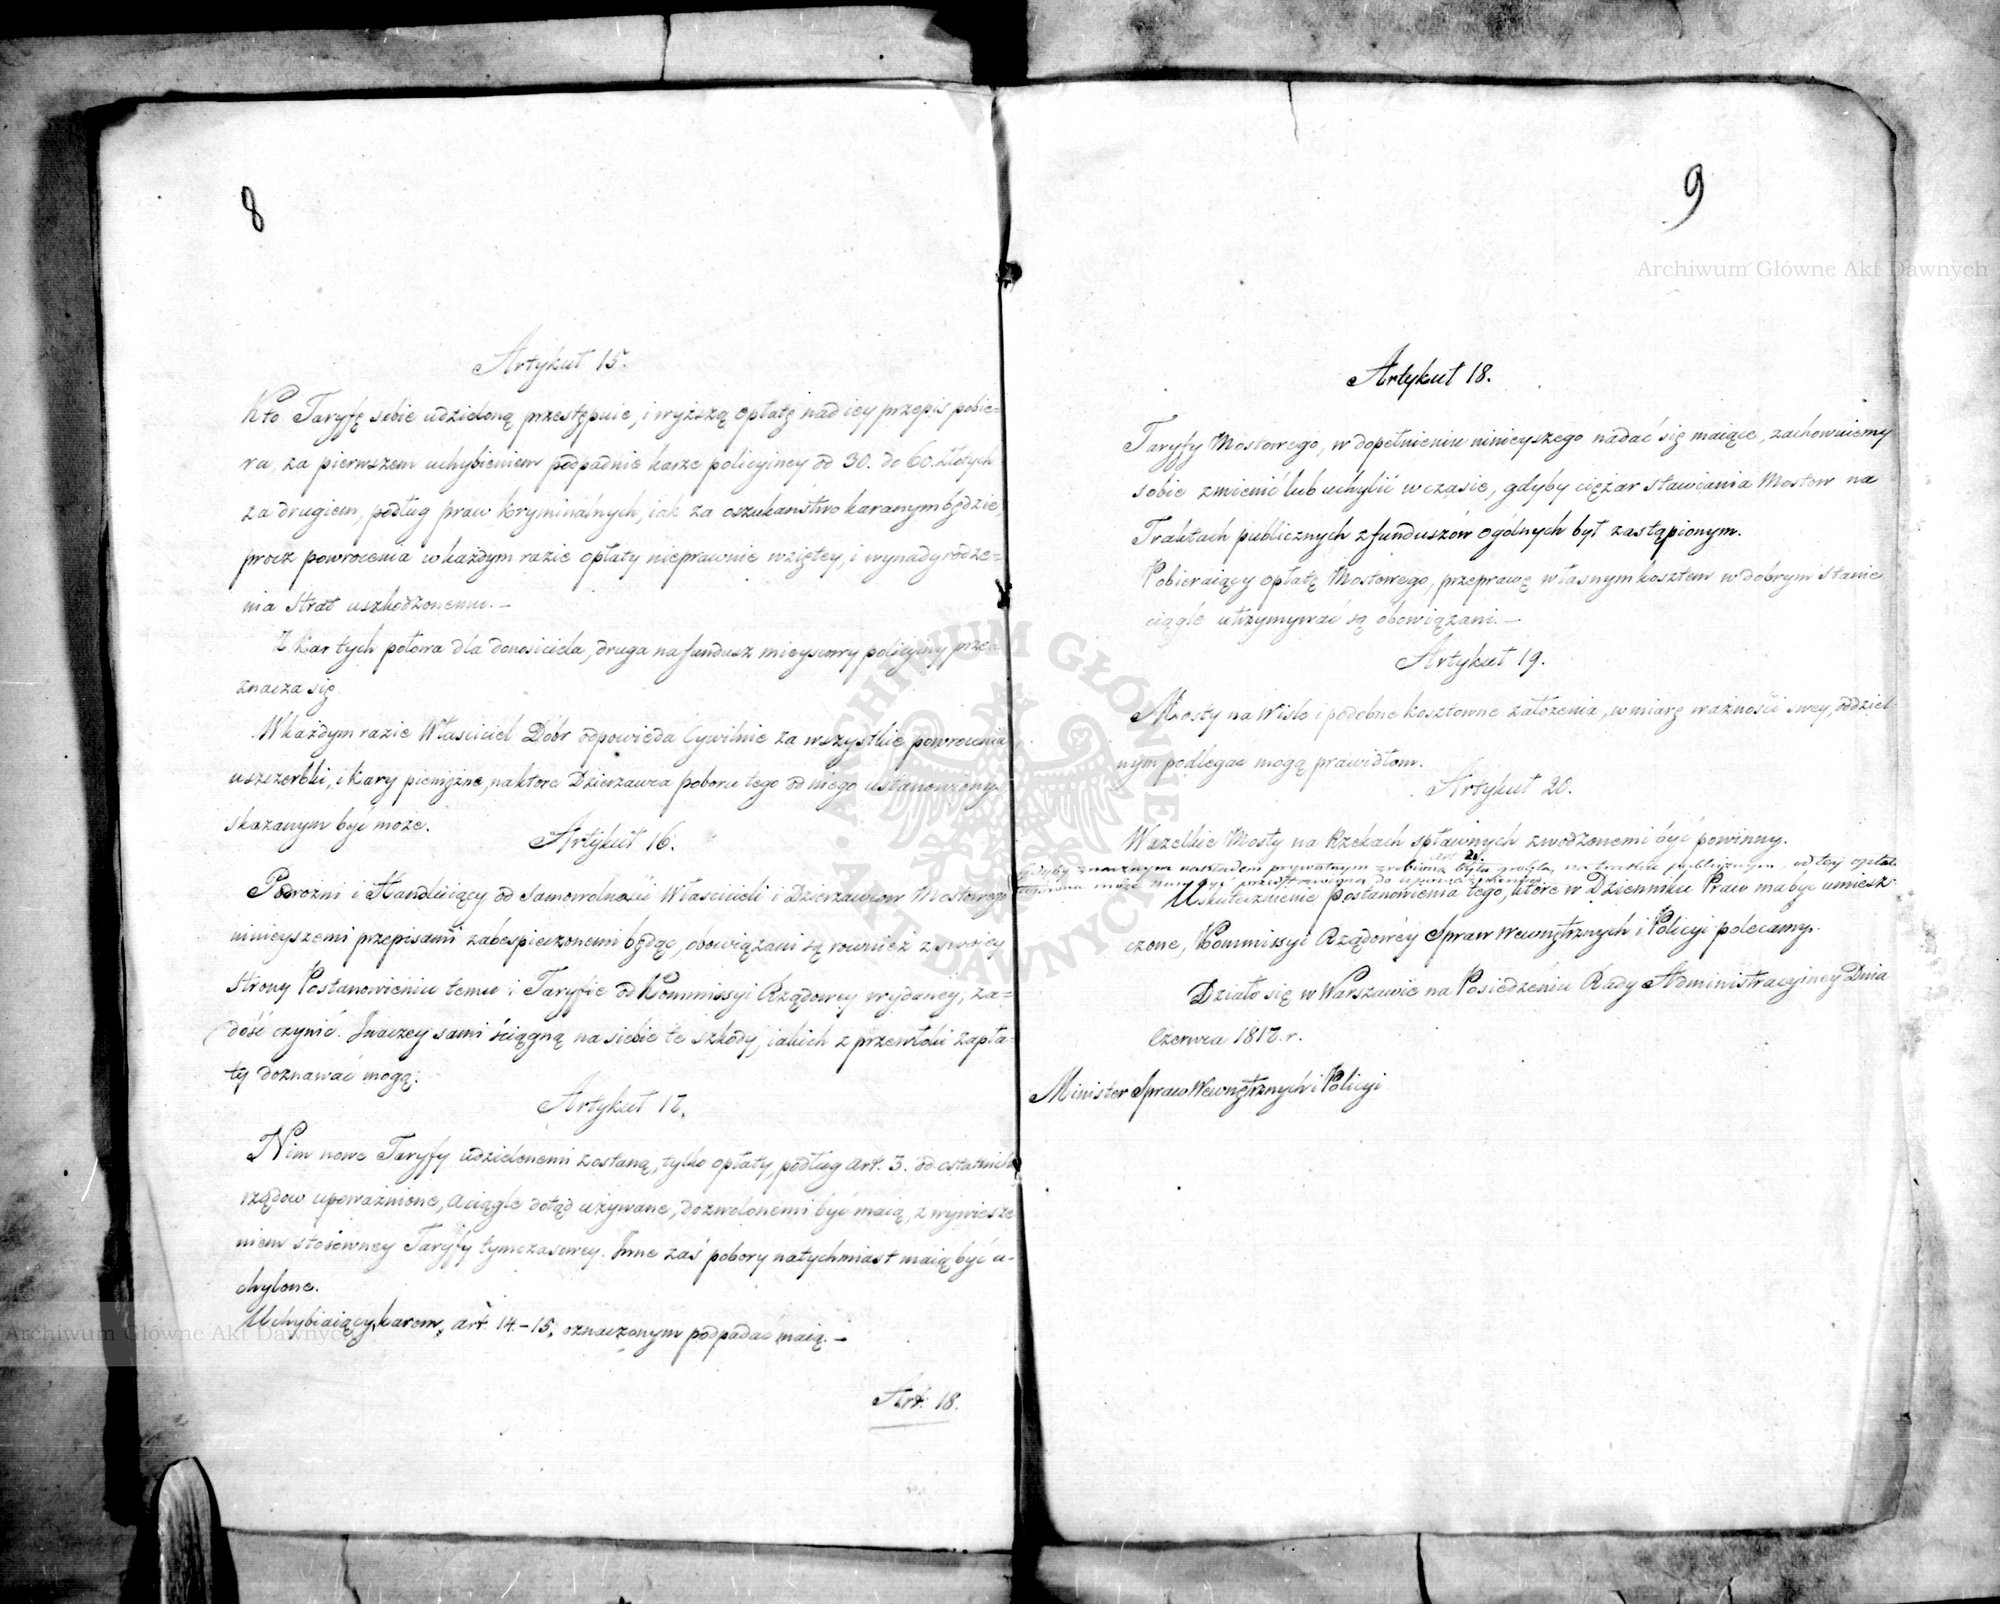 8
Artykuł 15.
Kto Taryfę sobie udzieloną przestępuie, i wyższą opłatę nad iey przepis pobie=
ra, za pierwszem uchybieniem podpadnie karze policyiney od 30. do 60. złotych
za drugiem, podług praw kryminalnych, iak za oszukaństwo karanym będzie,
procz powrocenia w każdym razie opłaty nieprawnie wziętey, i wynadgrodze=
nia strat uszkodzonemu. —
Z kar tych połowa dla donosiciela, druga na fundusz mieyscowy policyiny prze=
znacza się.
W każdym razie Własciciel Dóbr odpowiada Cywilnie za wszystkie powrocenia
uszczerbki, i kary pieniężne, na ktore Dzierzawca poboru tego od niego ustanowiony
skazanym być może.
Artykuł 16.
Podrożni i Handluiący od samowolności Właścicieli i Dzierzawcow Mostowego
ninieyszemi przepisami zabespieczonemi będąc, obowiązani są rownież z swoiey
strony Postanowieniu temu i Taryfie od Kommissyi Rządowey wydaney, za=
dość czynić. Inaczey sami ściągną na siebie te szkody, iakich z przewłoki zapła=
ty doznawać mogą.
Artykuł 17.
Nim nowe Taryfy udzielonemi zostaną, tylko opłaty, podług art. 3. od ostatnich
rządow upoważnione, a ciągle dotąd używane, dozwolonemi być maią, z wywiesze
niem stosowney Taryfy tymczasowey. Inne zaś pobory natychmiast maią być u-
chylone.
Uchybiaiący, karom, art. 14.–15. oznaczonym podpadać maią. —
Art. 18.
9
Artykuł 18.
Taryfy Mostowego, w dopełnieniu ninieyszego nadać się maiące, zachowuiemy
sobie zmienić lub uchylić w czasie, gdyby ciężar stawiania Mostow na
Traktach publicznych z funduszów ogólnych był zastąpionym.
Pobieraiący opłatę Mostowego, przeprawę własnym kosztem w dobrym stanie
ciągle utrzymywać są obowiązani. —
Artykuł 19.
Mosty na Wisle i podobne kosztowne założenia, w miarę ważności swey, oddziel
nym podlegać mogą prawidłom.
Artykuł 20.
Wszelkie Mosty na Rzekach spławnych zwodzonemi być powinny.
Art. 21.
Gdyby znacznym nakładem prywatnym zrobiona była grobla, na trakcie publicznym, od tey opłata
może być
Uskutecznienie Postanowienia tego, ktore w Dzienniku Praw ma być umiesz
czone, Kommissyi Rządowéy Spraw Wewnętrznych i Policyi polecamy.
Działo się w Warszawie na Posiedzeniu Rady Administracyiney Dnia
Czerwca 1817. r.
Minister Spraw Wewnętrznych i Policyi
Archiwum Główne Akt Dawnych
Archiwum Główne Akt Dawnych
ARCHIWUM GŁÓWNE AKT DAWNYCH